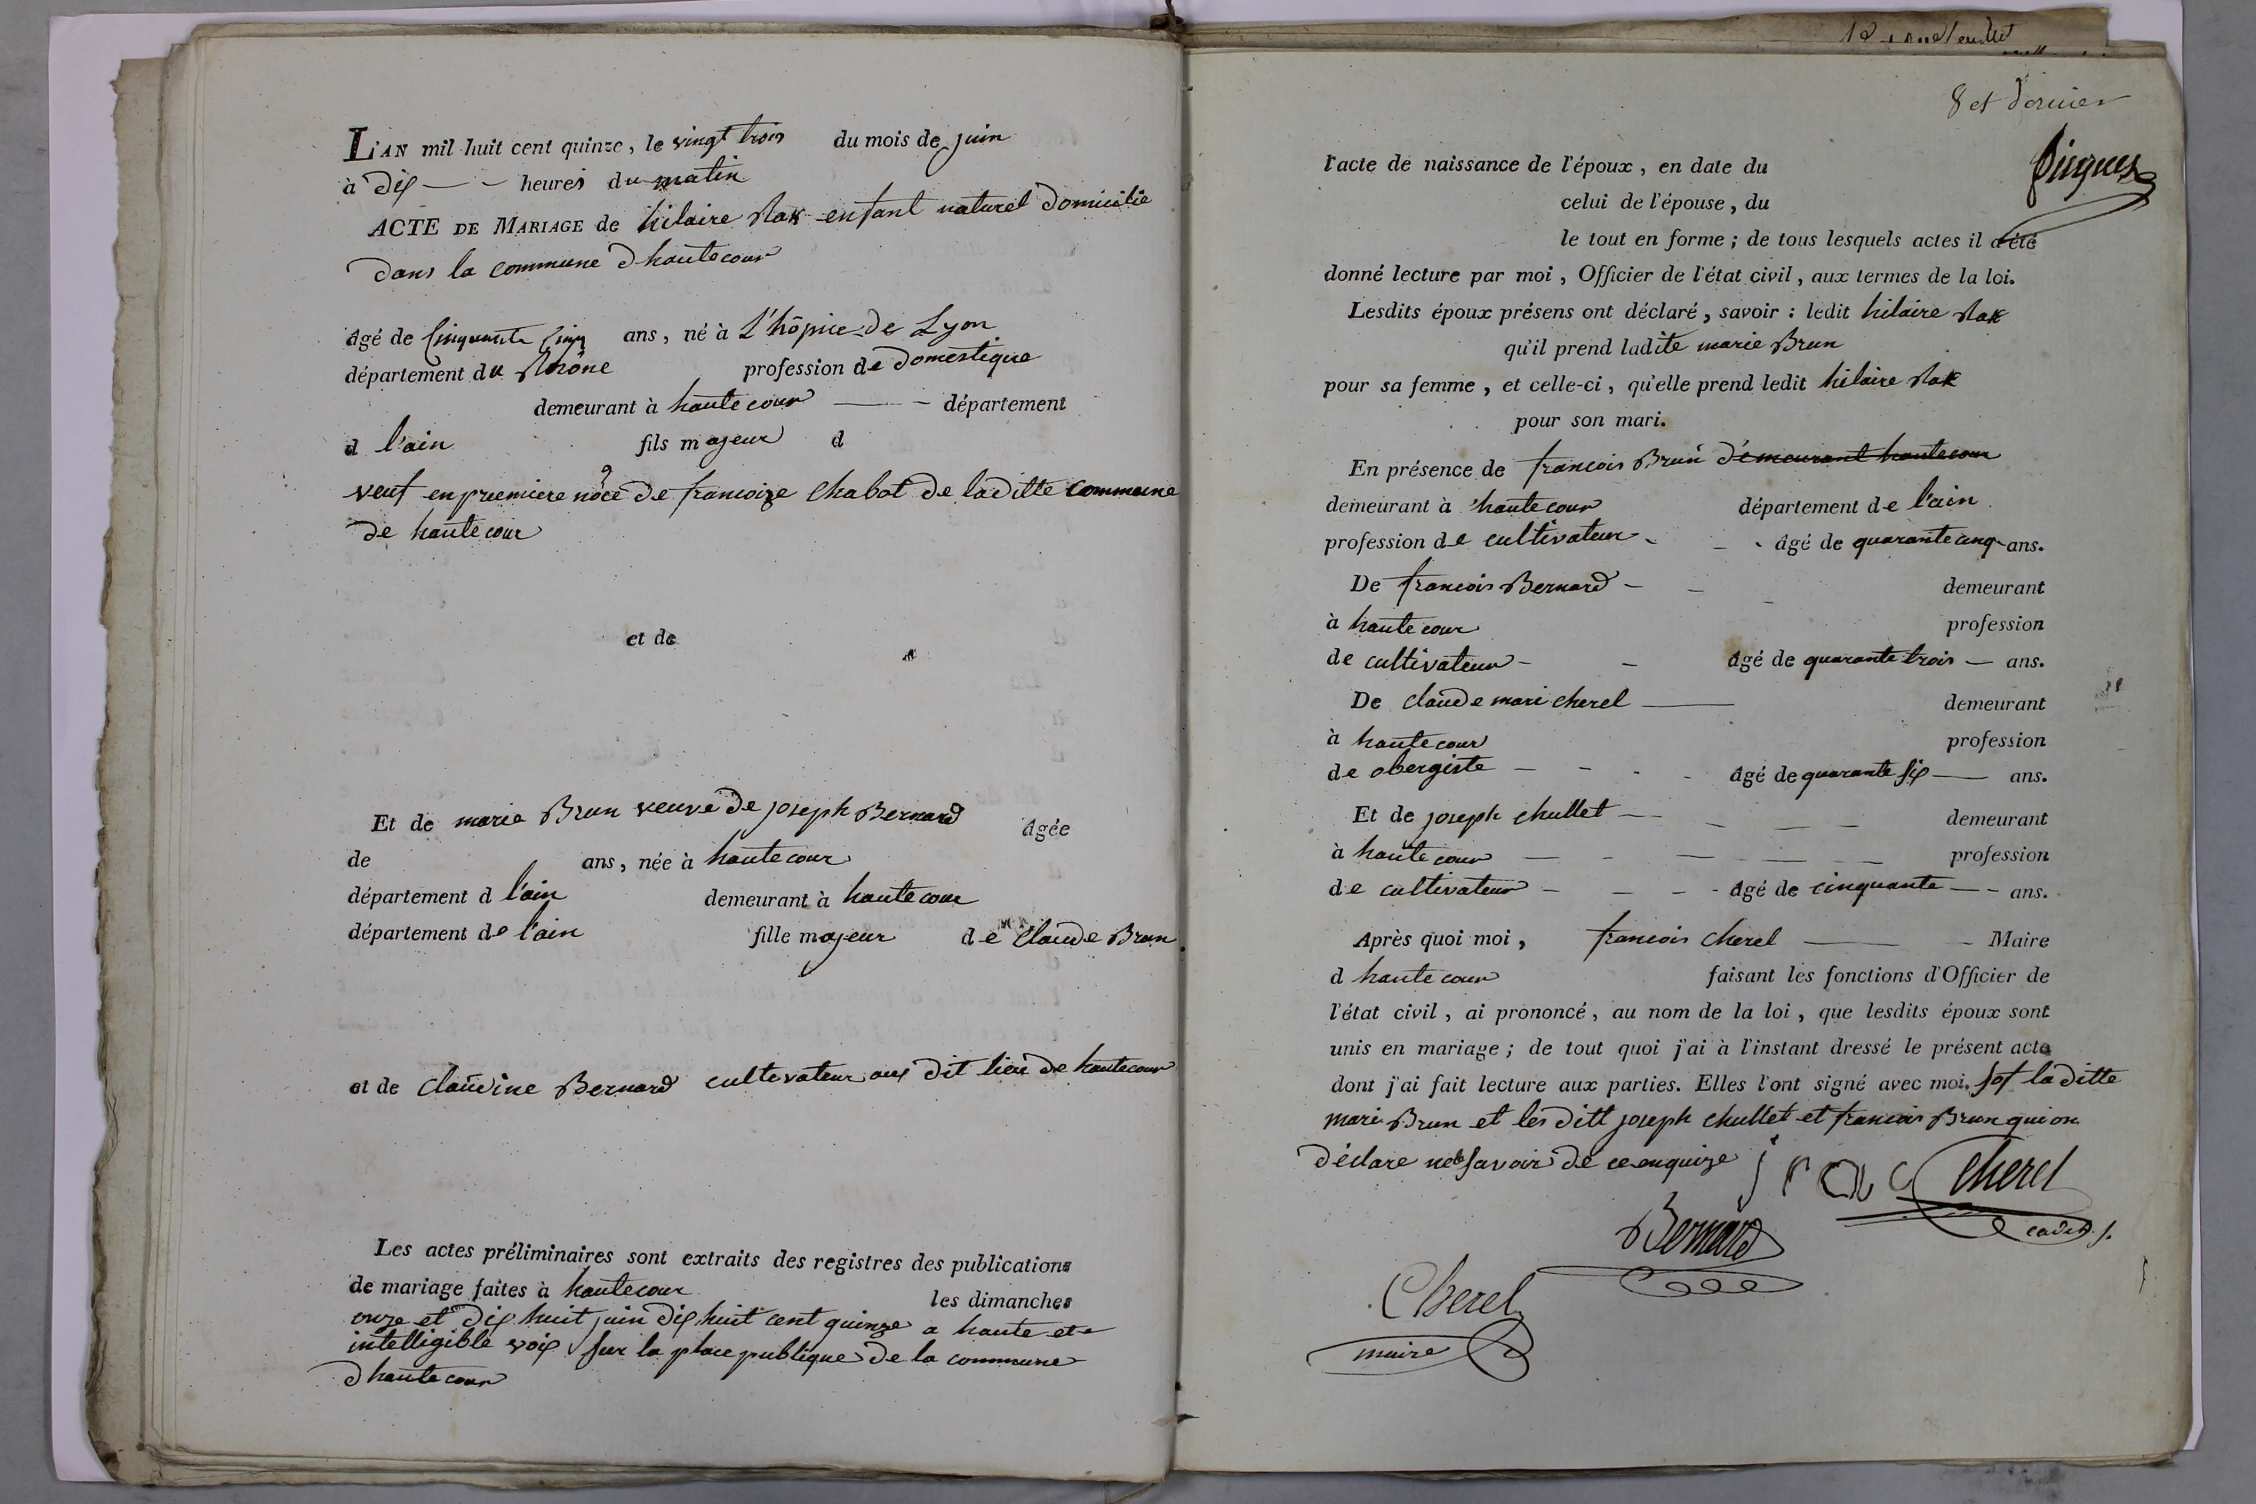 L'AN mil huit cent quinze, le vingt trois du mois de juin
à dix — - heures du matin
ACTE DE MARIAGE de hilaire Rak enfant naturel domicilié
dans la commune d hautecour
Agé de Cinquante Cinq ans, né à L'hôpice de Lyon
département du Rhône profession de domestique
demeurant à hautecour —— - département
d l'ain fils majeur d
veuf en premiere nôce de francoize Chabot de laditte commune
de hautecour
et de
Et de marie Brun veuve de joseph Bernard Agée
de ans, née à hautecour
département d l'ain demeurant à hautecour
département de l'ain fille majeur de Claude Brun
et de Claudine Bernard cultivateur aux dit lieu de hautecour
Les actes préliminaires sont extraits des registres des publications
de mariage faites à hautecour les dimanches
onze et dix huit juin dix huit cent quinze a haute et
intelligible voix sur la place publique de la commune
d hautecour
8 et dernier
l'acte de naissance de l'époux, en date du
celui de l'épouse, du
le tout en forme ; de tous lesquels actes il a été
donné lecture par moi, Officier de l'état civil, aux termes de la loi.
Lesdits époux présens ont déclaré, savoir : ledit hilaire Rak
qu'il prend ladite marie Brun
pour sa femme, et celle-ci, qu'elle prend ledit hilaire Rak
pour son mari.
En présence de francois Brun demeurant hautecour
demeurant à hautecour département de l'ain
profession de cultivateur - - - âgé de quarante cinq ans.
De francois Bernard - - - demeurant
à hautecour profession
de cultivateur - - Agé de quarante trois — ans.
De claude mari cherel —— demeurant
à hautecour profession
de obergiste - - - - Agé de quarante six — ans.
Et de joseph chullet — - — — demeurant
à hautecour — - — - — — profession
de cultivateur - — - - Agé de cinquante — - ans.
Après quoi moi, francois cherel —— - Maire
d hautecour faisant les fonctions d'Officier de
l'état civil, ai prononcé, au nom de la loi, que lesdits époux sont
unis en mariage ; de tout quoi j'ai à l'instant dressé le présent acte
dont j'ai fait lecture aux parties. Elles l'ont signé avec moi. sof laditte
mari Brun et les ditt joseph chullet et francois Brun qui on
déclare ne le savoir de ce enquize
Cherel
cadet
Bernard
Cherel
maire